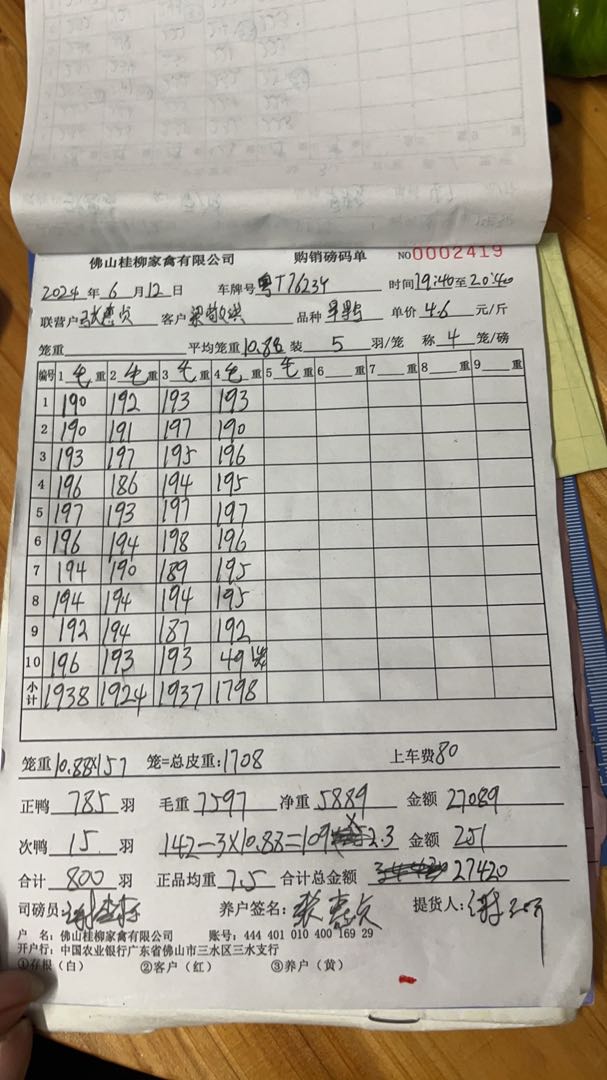 佛山桂柳家禽有限公司 购销磅码单 NO 0002419
2024 年 6 月 12 日 车牌号 粤T76234 时间 19:40 至 20:40
联营户 客户 品种 单价 4.6 元/斤
笼重 平均笼重 10.88 装 5 羽/笼 称 4 笼/磅
编号 1 毛 重 2 毛 重 3 毛 重 4 毛 重 5 毛 重 6 重 7 重 8 重 9 重
1 190 192 193 193
2 190 191 197 190
3 193 197 195 196
4 196 186 194 195
5 197 193 197 197
6 196 194 198 196
7 194 190 189 195
8 194 194 194 195
9 192 194 187 192
10 196 193 193 49
小计 1938 1924 1937 1798
笼重 10.88×157 笼=总皮重: 1708 上车费 80
正鸭 785 羽 毛重 7597 净重 5889 金额 27089
次鸭 15 羽 142-3×10.88=109 × 2.3 金额 251
合计 800 羽 正品均重 7.5 合计总金额 27420
司磅员: 养户签名: 提货人:
户 名: 佛山桂柳家禽有限公司 账号: 444 401 010 400 169 29
开户行: 中国农业银行广东省佛山市三水区三水支行
①存根(白) ②客户(红) ③养户(黄)